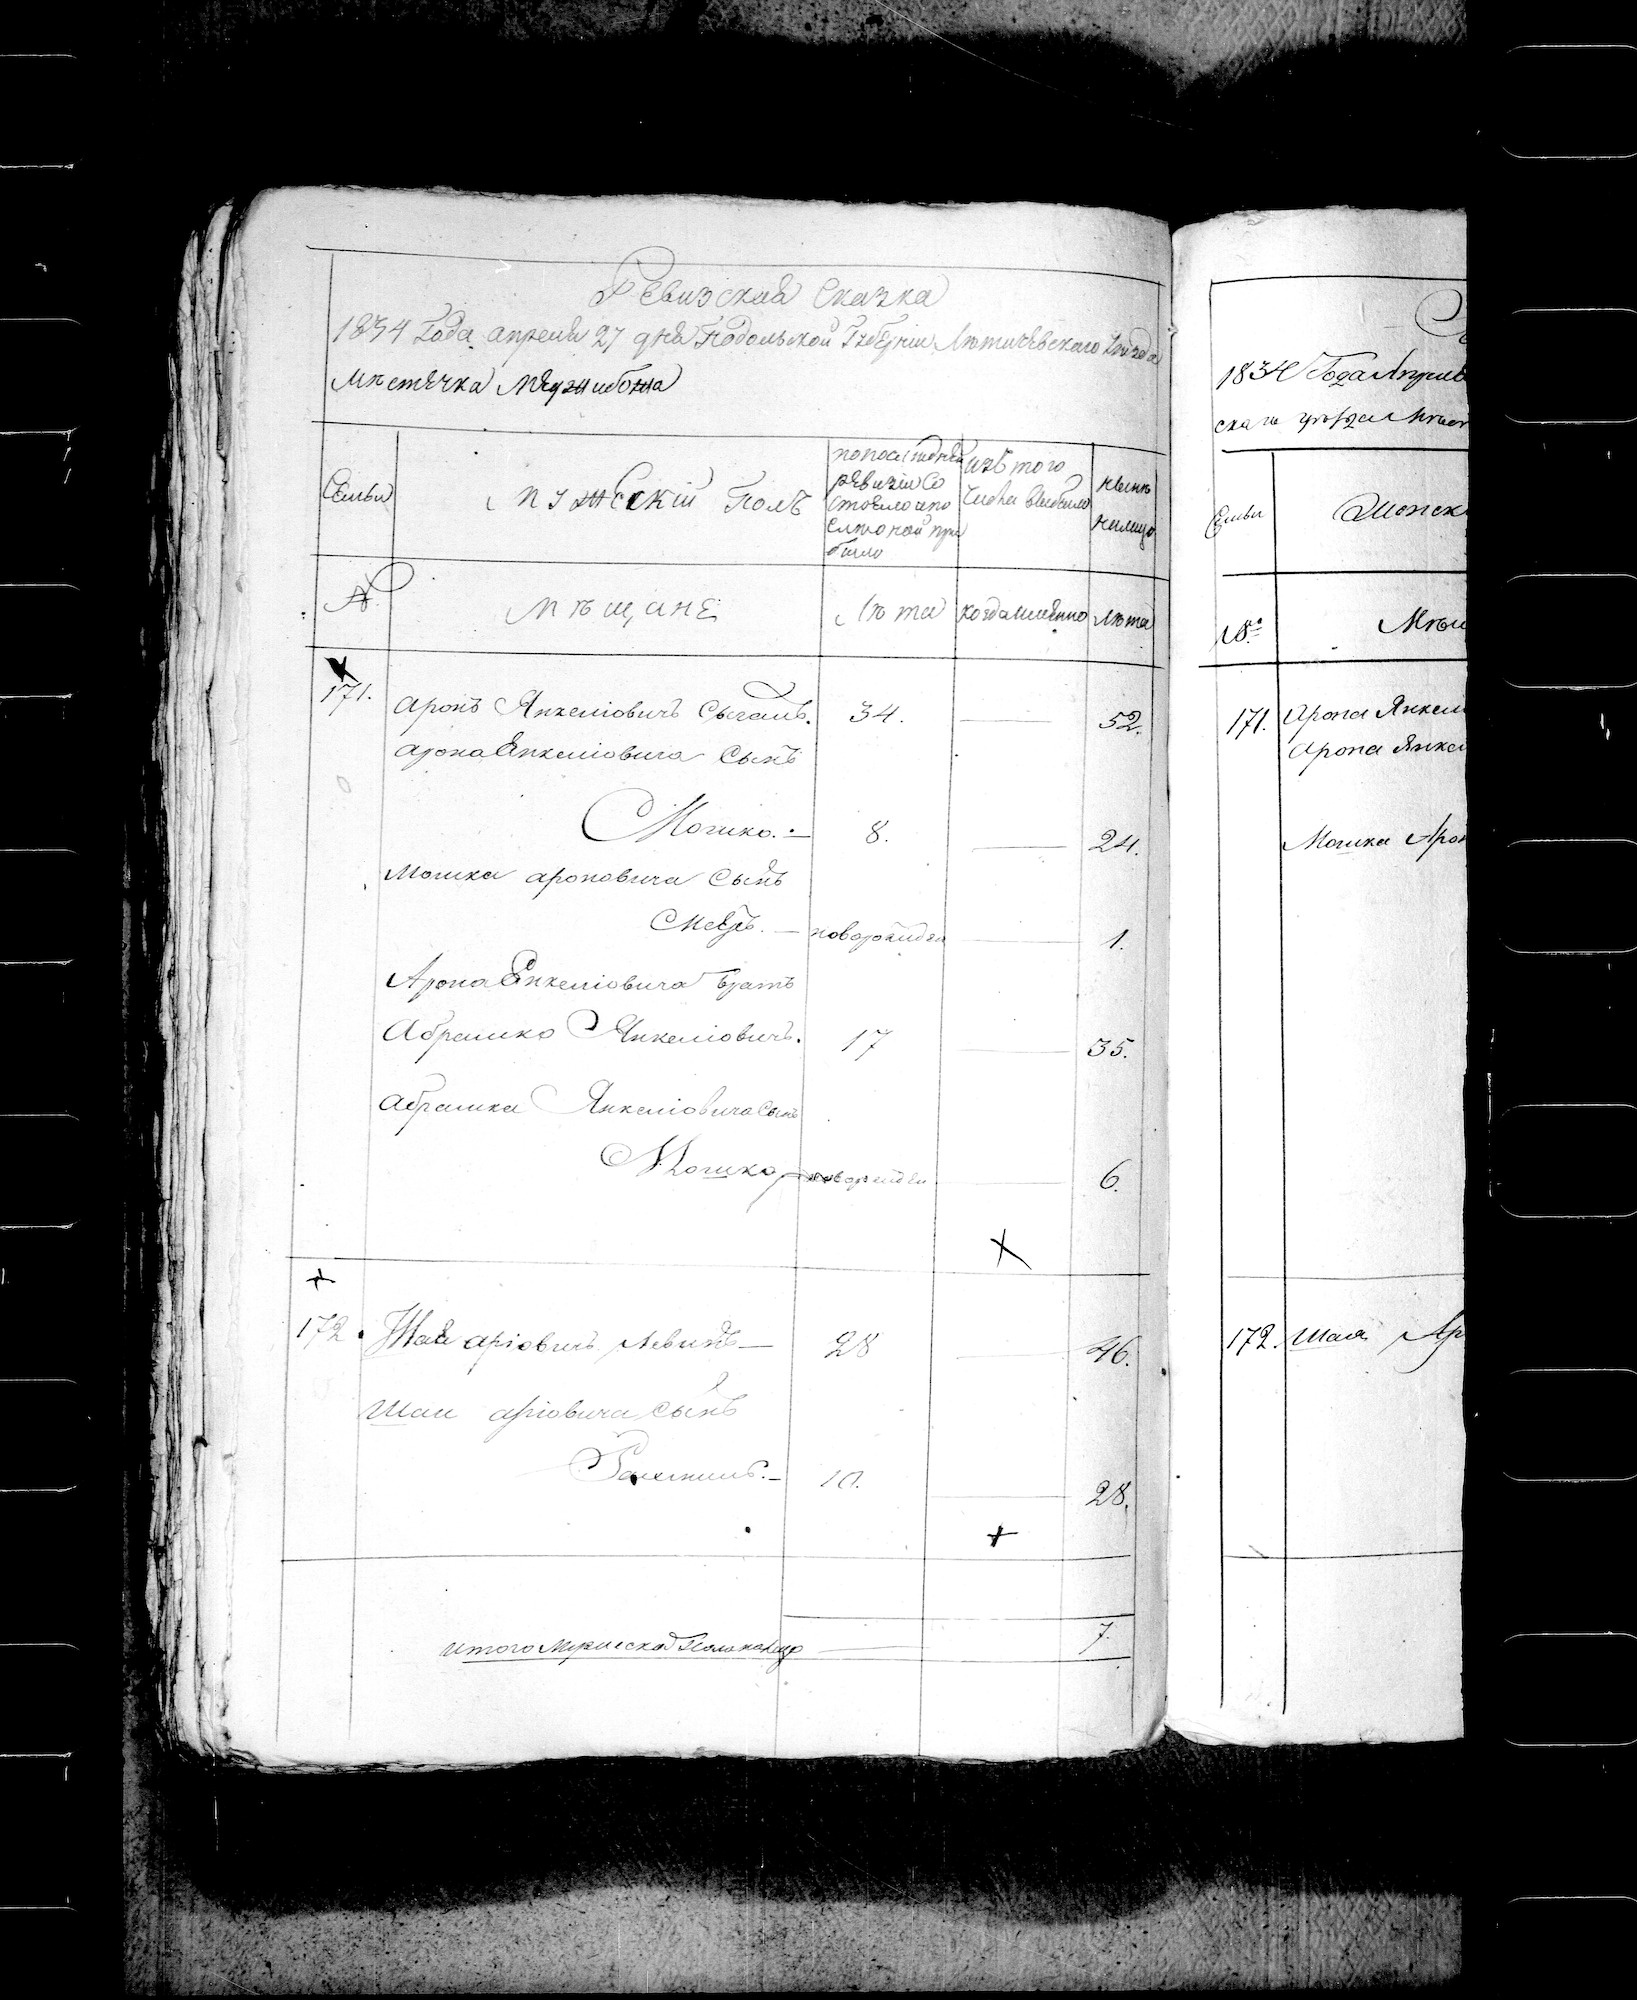 Ревизская Сказка
1834 Года апреля 27 дня Подольской Губернии Летичевскаго уезда
Местечка Межибожа
Семьи
Мужескій Полъ
попоследней
ревизіи со
стояло и по
сле оной при
было
изъ того
числа выбыло
ныне
налицо
№
Мещане
Лета
когда именно
лета
171.
Аронъ Янкеліовичъ Сыгалъ.
34.
52.
Арона Янкеліовича Сынъ
Мошко.
8.
24.
Мошка ароновича Сынъ
новорожден
1.
Арона Янкеліовича братъ
Абрашко Янкеліовичъ.
17
35.
Абрашка Янкеліовича Сынъ
Мошко
новорожден
6.
172.
Шая аріовичъ Левитъ
28
46.
Шаи аріовича Сынъ
10.
28.
итого Мужеска Пола налицо
7.
1834 Года Апреля
скаго уезда Мест
Семьи
Женск
№
Меща
171.
Арона Янкел
Арона Янкел
Мошка Арон
172.
Шая Ар